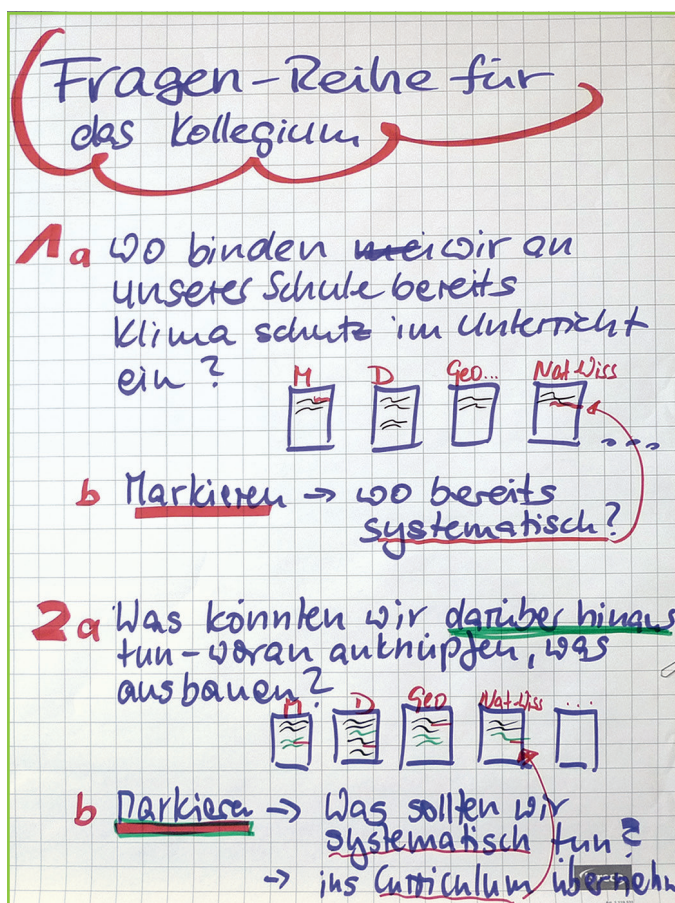 Fragen-Reihe für
das Kollegium
1a wo binden wir an
unserer Schule bereits
Klima schutz im Unterricht
ein?
M D Geo... Nat Wiss
....
b Markieren → wo bereits
systematisch?
2a Was könnten wir darüber hinaus
tun - woran anknüpfen, was
ausbauen?
M D Geo Nat Wiss ...
b Markieren → Was sollten wir
systematisch tun?
→ ins Curriculum übernehm